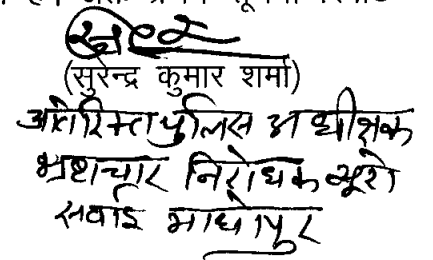 (सुरेन्द्र कुमार शर्मा)
अतिरिक्त पुलिस अधीक्षक
भ्रष्टाचार निरोधक ब्यूरो
सवाई माधोपुर